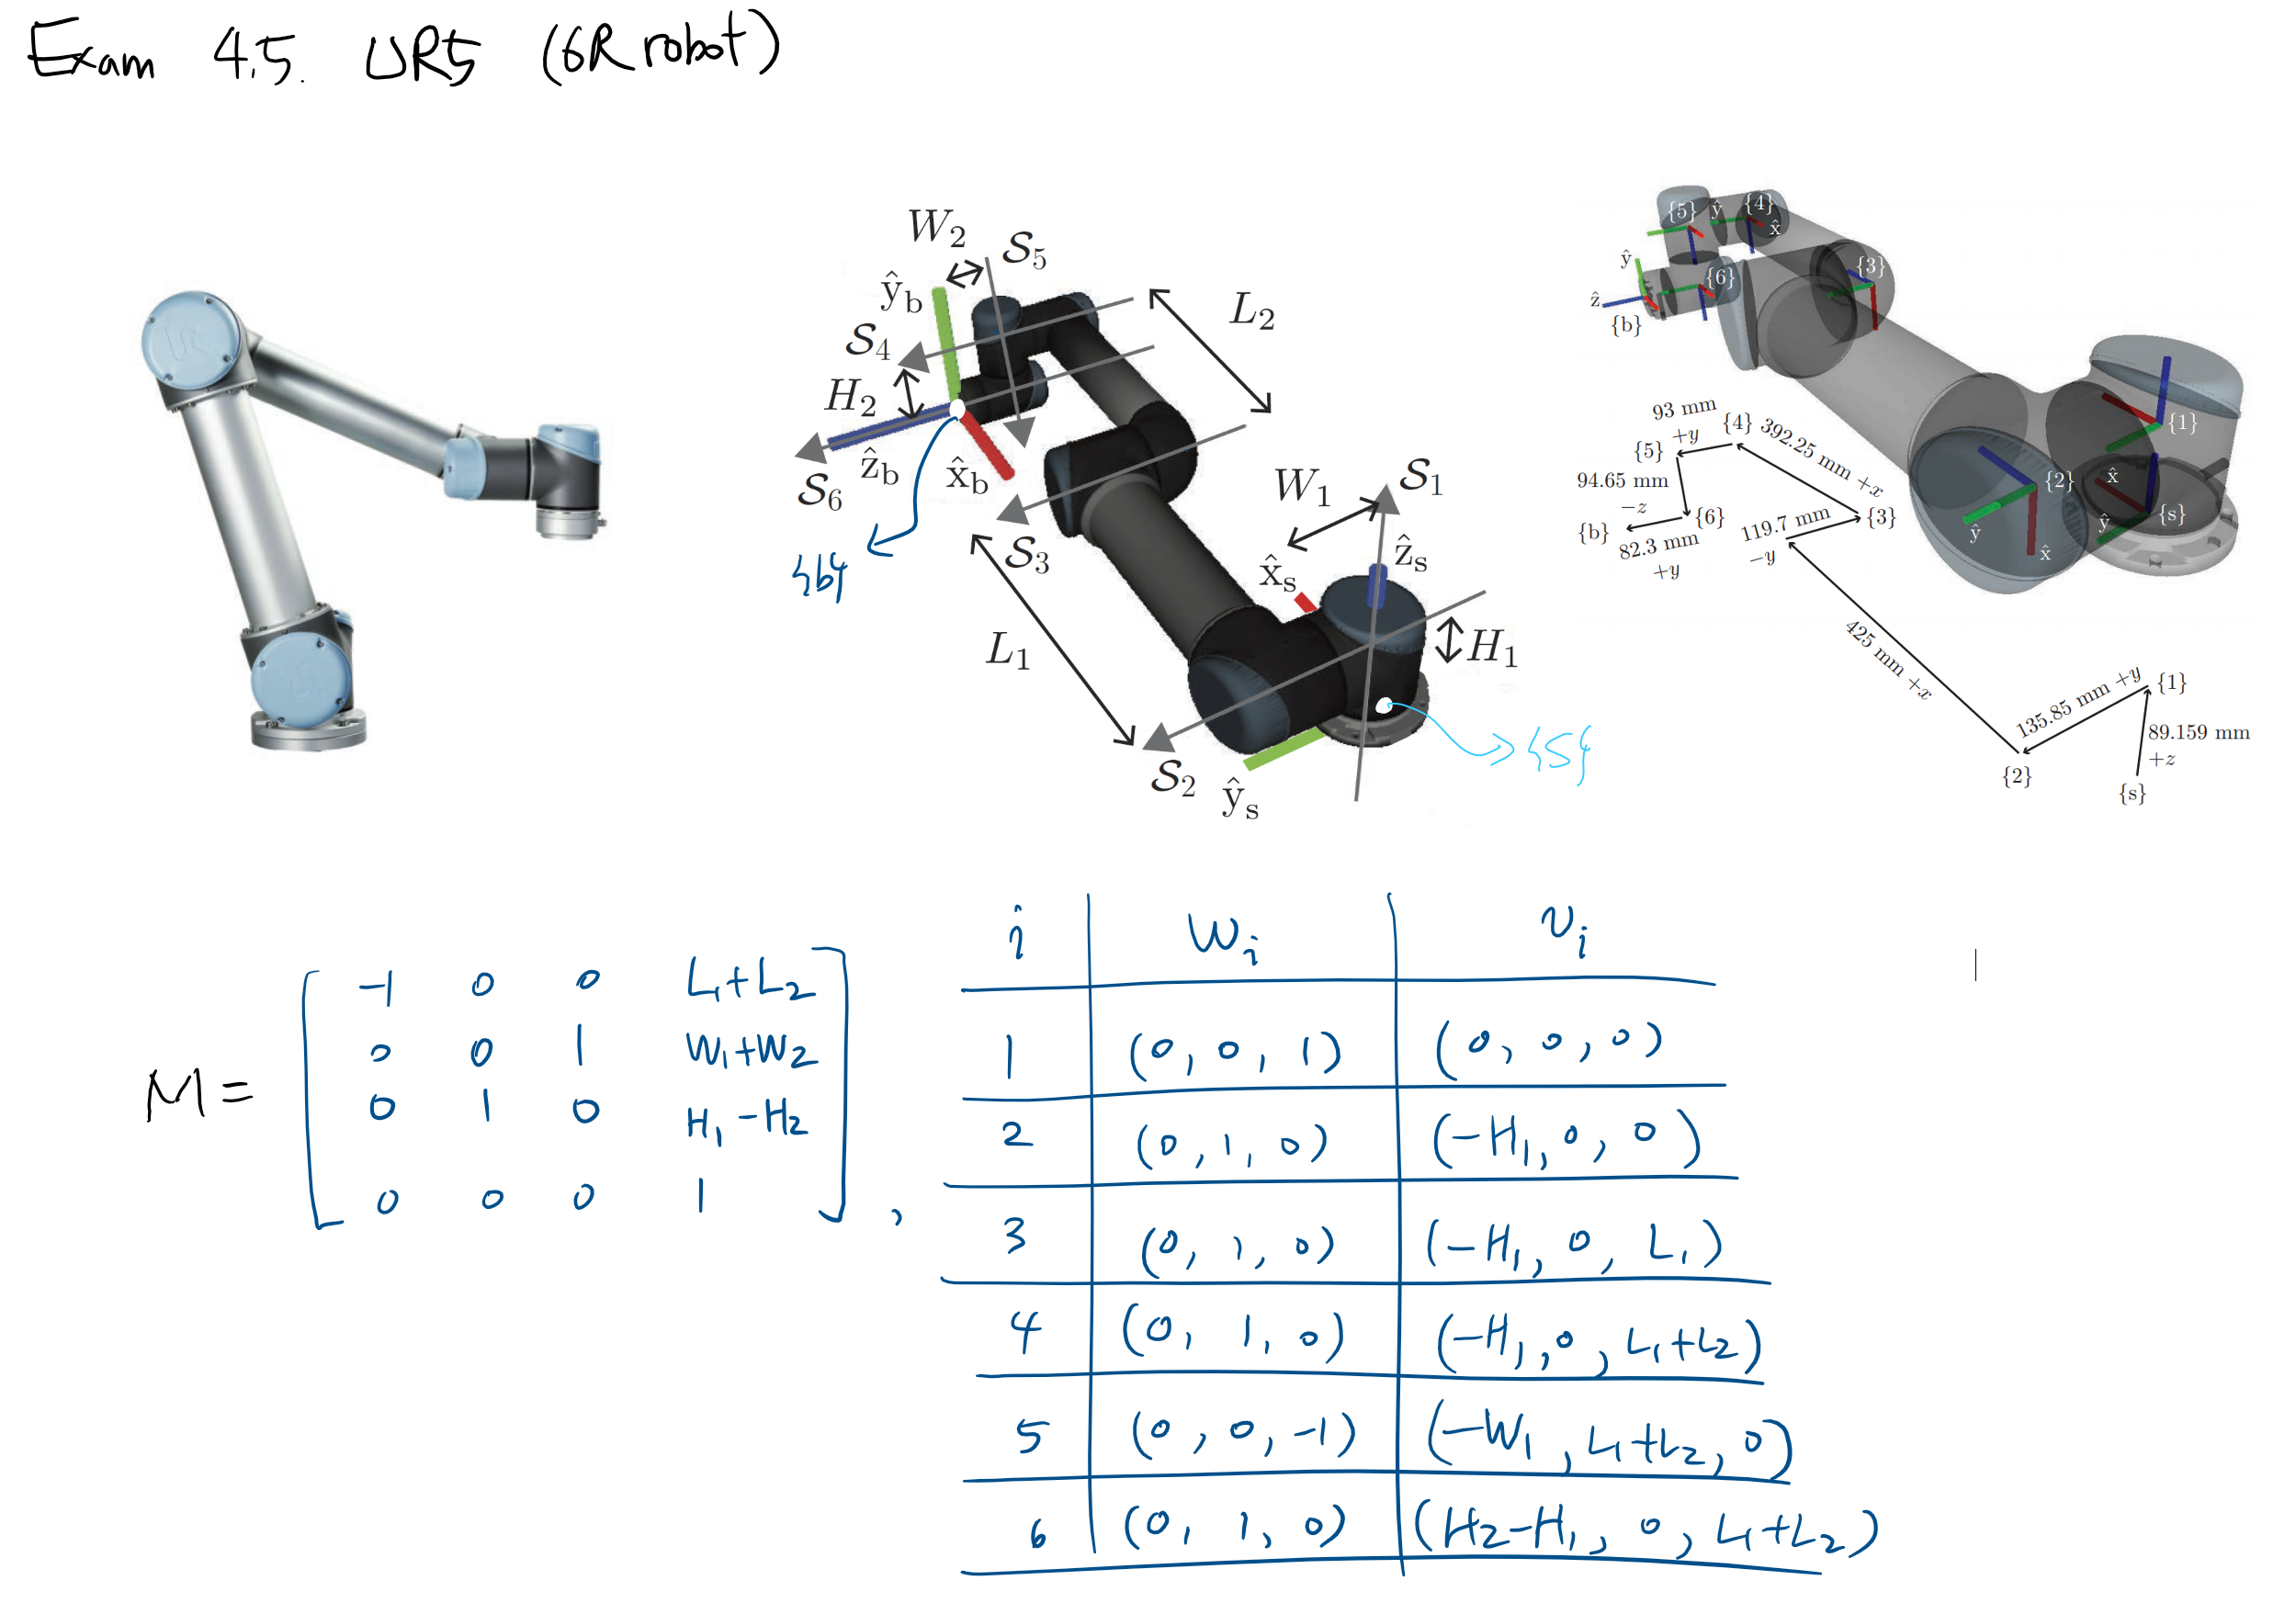 Exam 4.5. UR5 (6R robot)
W₂
S₅
ŷb
S₄
L₂
H₂
ẑb
x̂b
S₆
{b}
S₃
W₁
S₁
ẑs
x̂s
L₁
H₁
S₂
ŷs
{s}
{5} ŷ {4}
x̂
ŷ
{6}
{3}
ẑ
{b}
{1}
{2}
x̂
{s}
ŷ
ŷ
x̂
93 mm
+y
{4}
392.25 mm +x
{5}
94.65 mm
−z
{6}
{b}
82.3 mm
+y
119.7 mm
−y
{3}
425 mm +x
135.85 mm +y
{1}
89.159 mm
+z
{2}
{s}
M =
-1 0 0 L₁+L₂
0 0 1 W₁+W₂
0 1 0 H₁-H₂
0 0 0 1
,
i wᵢ vᵢ
1 (0, 0, 1) (0, 0, 0)
2 (0, 1, 0) (-H₁, 0, 0)
3 (0, 1, 0) (-H₁, 0, L₁)
4 (0, 1, 0) (-H₁, 0, L₁+L₂)
5 (0, 0, -1) (-W₁, L₁+L₂, 0)
6 (0, 1, 0) (H₂-H₁, 0, L₁+L₂)